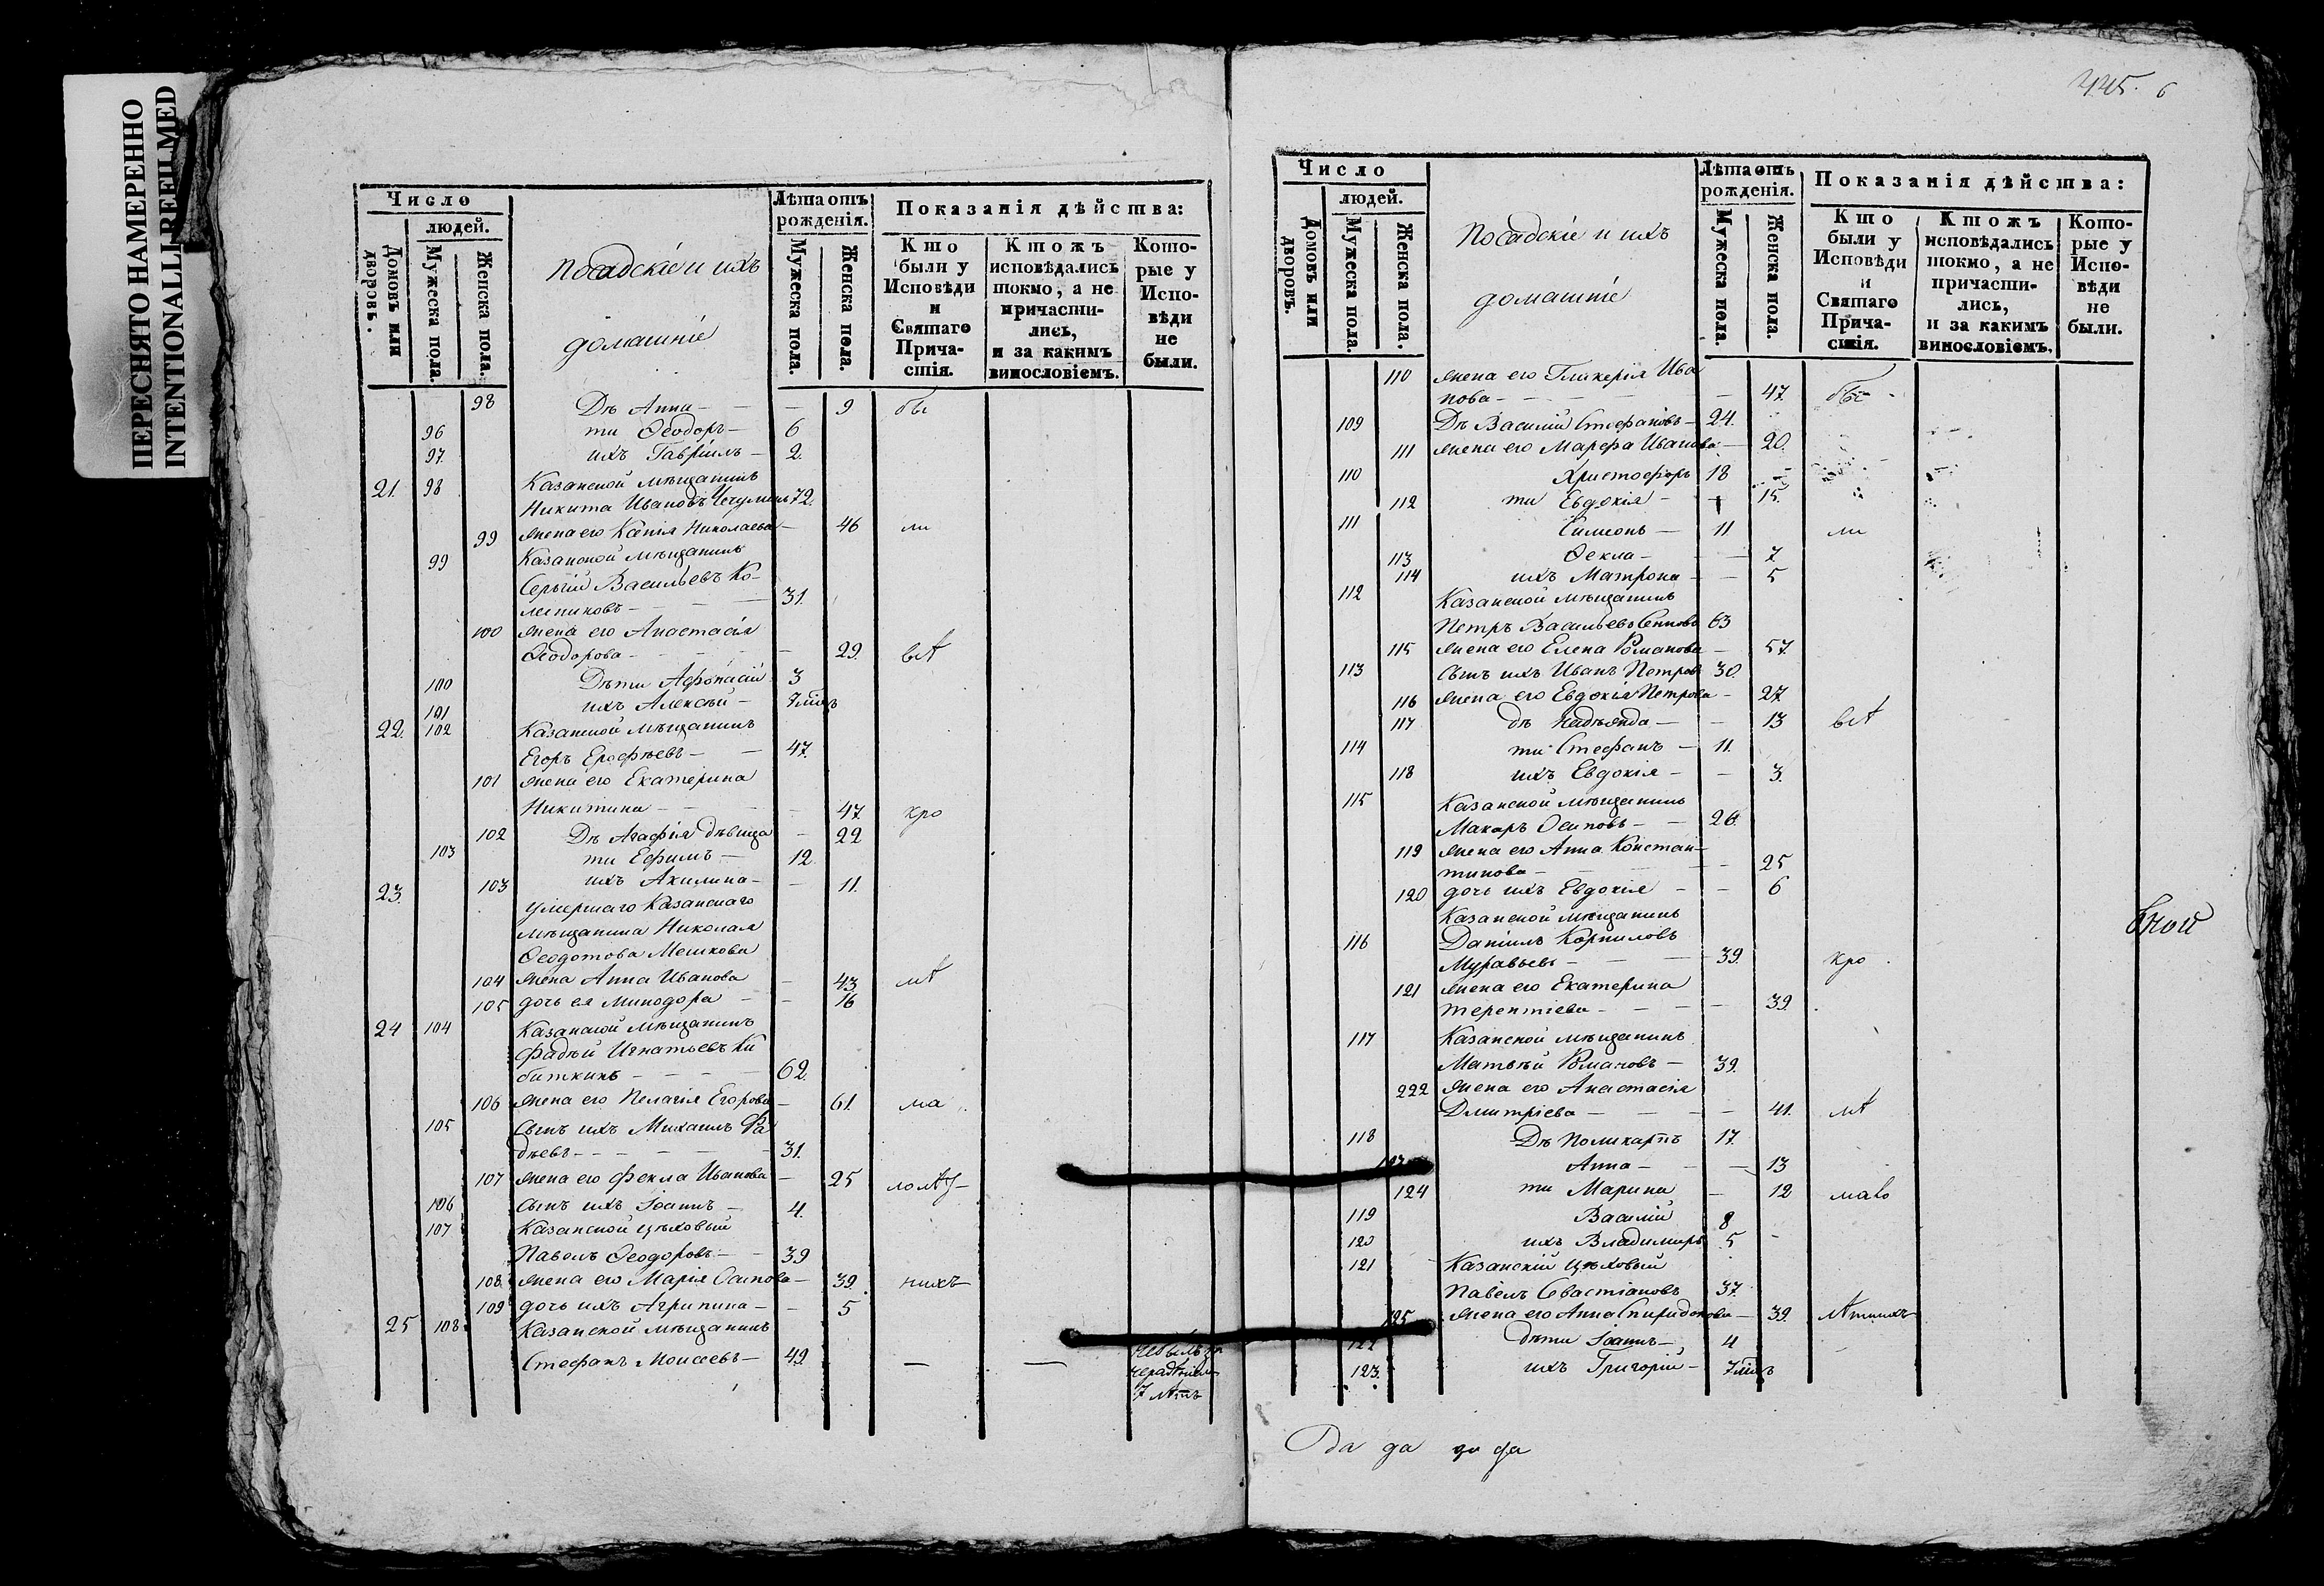 ПЕРЕСНЯТО НАМЕРЕННО
INTENTIONALLY REFILMED
Число
людей.
Домовъ или дворовъ.
Мужеска пола.
Женска пола.
Посадскіе и ихъ
домашніе
Лѣта отъ рожденія.
Мужеска пола.
Женска пола.
Показанія дѣйства:
Кто были у Исповѣди и Святаго Причастія.
Ктожъ исповѣдались токмо, а не причастились, и за какимъ винословіемъ.
Которые у Исповѣди не были.
98 Дѣ Анна - - 9 бы
96 ти Ѳеодоръ - 6
97. ихъ Гавріилъ - 2.
21. 98 Казанской мѣщанинъ
Никита Ивановъ 72.
99 жена его Ксенія Николаева - 46 ли
99 Казанской мѣщанинъ
Сергій Васильевъ Ко-
лѣпиковъ - - - 31.
100 жена его Анастасія
Ѳеодорова - - - 29. всѣ
100 Дѣти Афонасій 3
101 ихъ Алексѣй - 7 міцъ
22. 102 Казанской мѣщанинъ
Егоръ Ерофѣевъ - - 47.
101 жена его Екатерина
Никитина - - - 47. кро
102 Дѣ Агафія дѣвица - 22
103 ти Ефимъ - 12.
23. 103 ихъ Акилина - - 11.
умершаго Казанскаго
мѣщанина Николая
Ѳеодотова Мешкова
104 жена Анна Иванова - 43. мѣ
105 дочь ея Минодора - - 16
24 104 Казанской мѣщанинъ
Фадѣй Игнатьевъ Ки
биткинъ - - - - 62.
106 жена его Пелагія Егорова - 61. ма
105 Сынъ ихъ Михаилъ Фа
дѣевъ - - - - - 31.
107 жена его Фекла Иванова - 25
106 сынъ ихъ Іоаннъ - 4.
107 Казанской цѣховый
Павелъ Ѳеодоровъ - - 39
108. жена его Марія Осипова - 39. нихъ
109 дочь ихъ Агрипина - - 5
25 108. Казанской мѣщанинъ
Стефанъ Моисеевъ - 49. — — небылъ за
нерадѣніемъ
7 лѣтъ
445. 6
Число
людей.
Домовъ или дворовъ.
Мужеска пола.
Женска пола.
Посадскіе и ихъ
домашніе
Лѣта отъ рожденія.
Мужеска пола.
Женска пола.
Показанія дѣйства:
Кто были у Исповѣди и Святаго Причастія.
Ктожъ исповѣдались токмо, а не причастились, и за какимъ винословіемъ.
Которые у Исповѣди не были.
110 жена его Гликерія Ива
нова - - - - - 47.
109 Дѣ Василій Стефановъ - 24.
111 жена его Марфа Иванова - 20.
110 Христофоръ 18
112 ти Евдокія - - 15.
111 Симеонъ - 11 ли
113 Ѳекла - - 7
114 ихъ Матрона - - 5
112 Казанской мѣщанинъ
Петръ Васильевъ 63
115 жена его Елена Романова - 57.
113 Сынъ ихъ Иванъ Петровъ 30.
116 жена его Евдокія Петрова - 27
117 дѣ Надежда - - 13 всѣ
114 ти Стефанъ - 11.
118 ихъ Евдокія - - 3.
115 Казанской мѣщанинъ
Макаръ Осиповъ - - 26.
119 жена его Анна Констан-
тинова - - - 25
120 дочь ихъ Евдокія - - 6
Казанской мѣщанинъ
116 Даніилъ Корниловъ
Муравьевъ - - - 39. кро
121 жена его Екатерина
Терентіева - - - - 39.
117 Казанской мѣщанинъ
Матвѣй Романовъ - 39.
222 жена его Анастасія
Дмитріева - - - - 41. лѣ
118 Дѣ Поликарпъ 17.
123 Анна - - - 13
124 ти Марина - 12 мало
119 Василій 8
120 ихъ Владимиръ 5 -
121 Казанскій цѣховый
Павелъ Севастіановъ 37.
125 жена его Анна Спиридонова - 39.
122 дѣти Іоаннъ - 4
123. ихъ Григорій - 7 міцъ
Да да да да